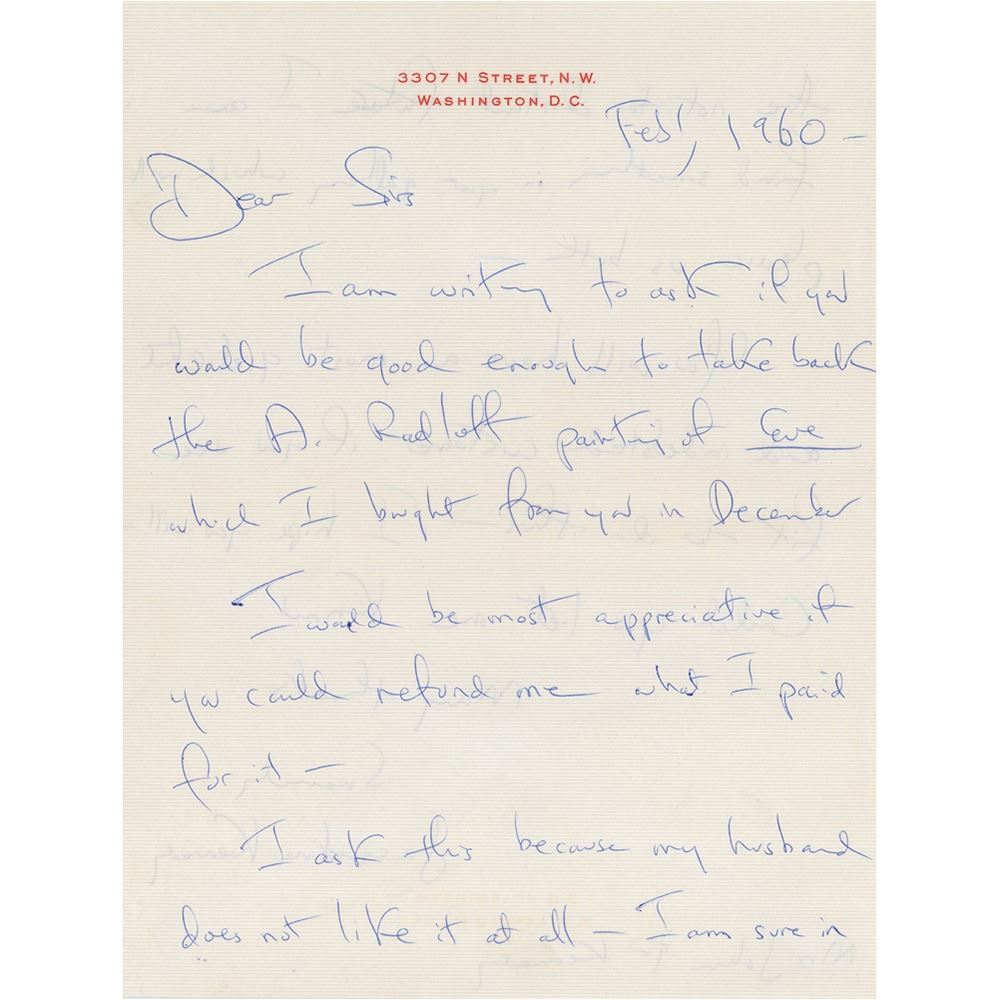 3307 N STREET, N.W.
WASHINGTON, D.C.
Feb 1, 1960 –
Dear Sirs
I am writing to ask if you
would be good enough to take back
the A. Radloff painting of Eve
which I bought from you in December
I would be most appreciative if
you could refund me what I paid
for it –
I ask this because my husband
does not like it at all – I am sure in